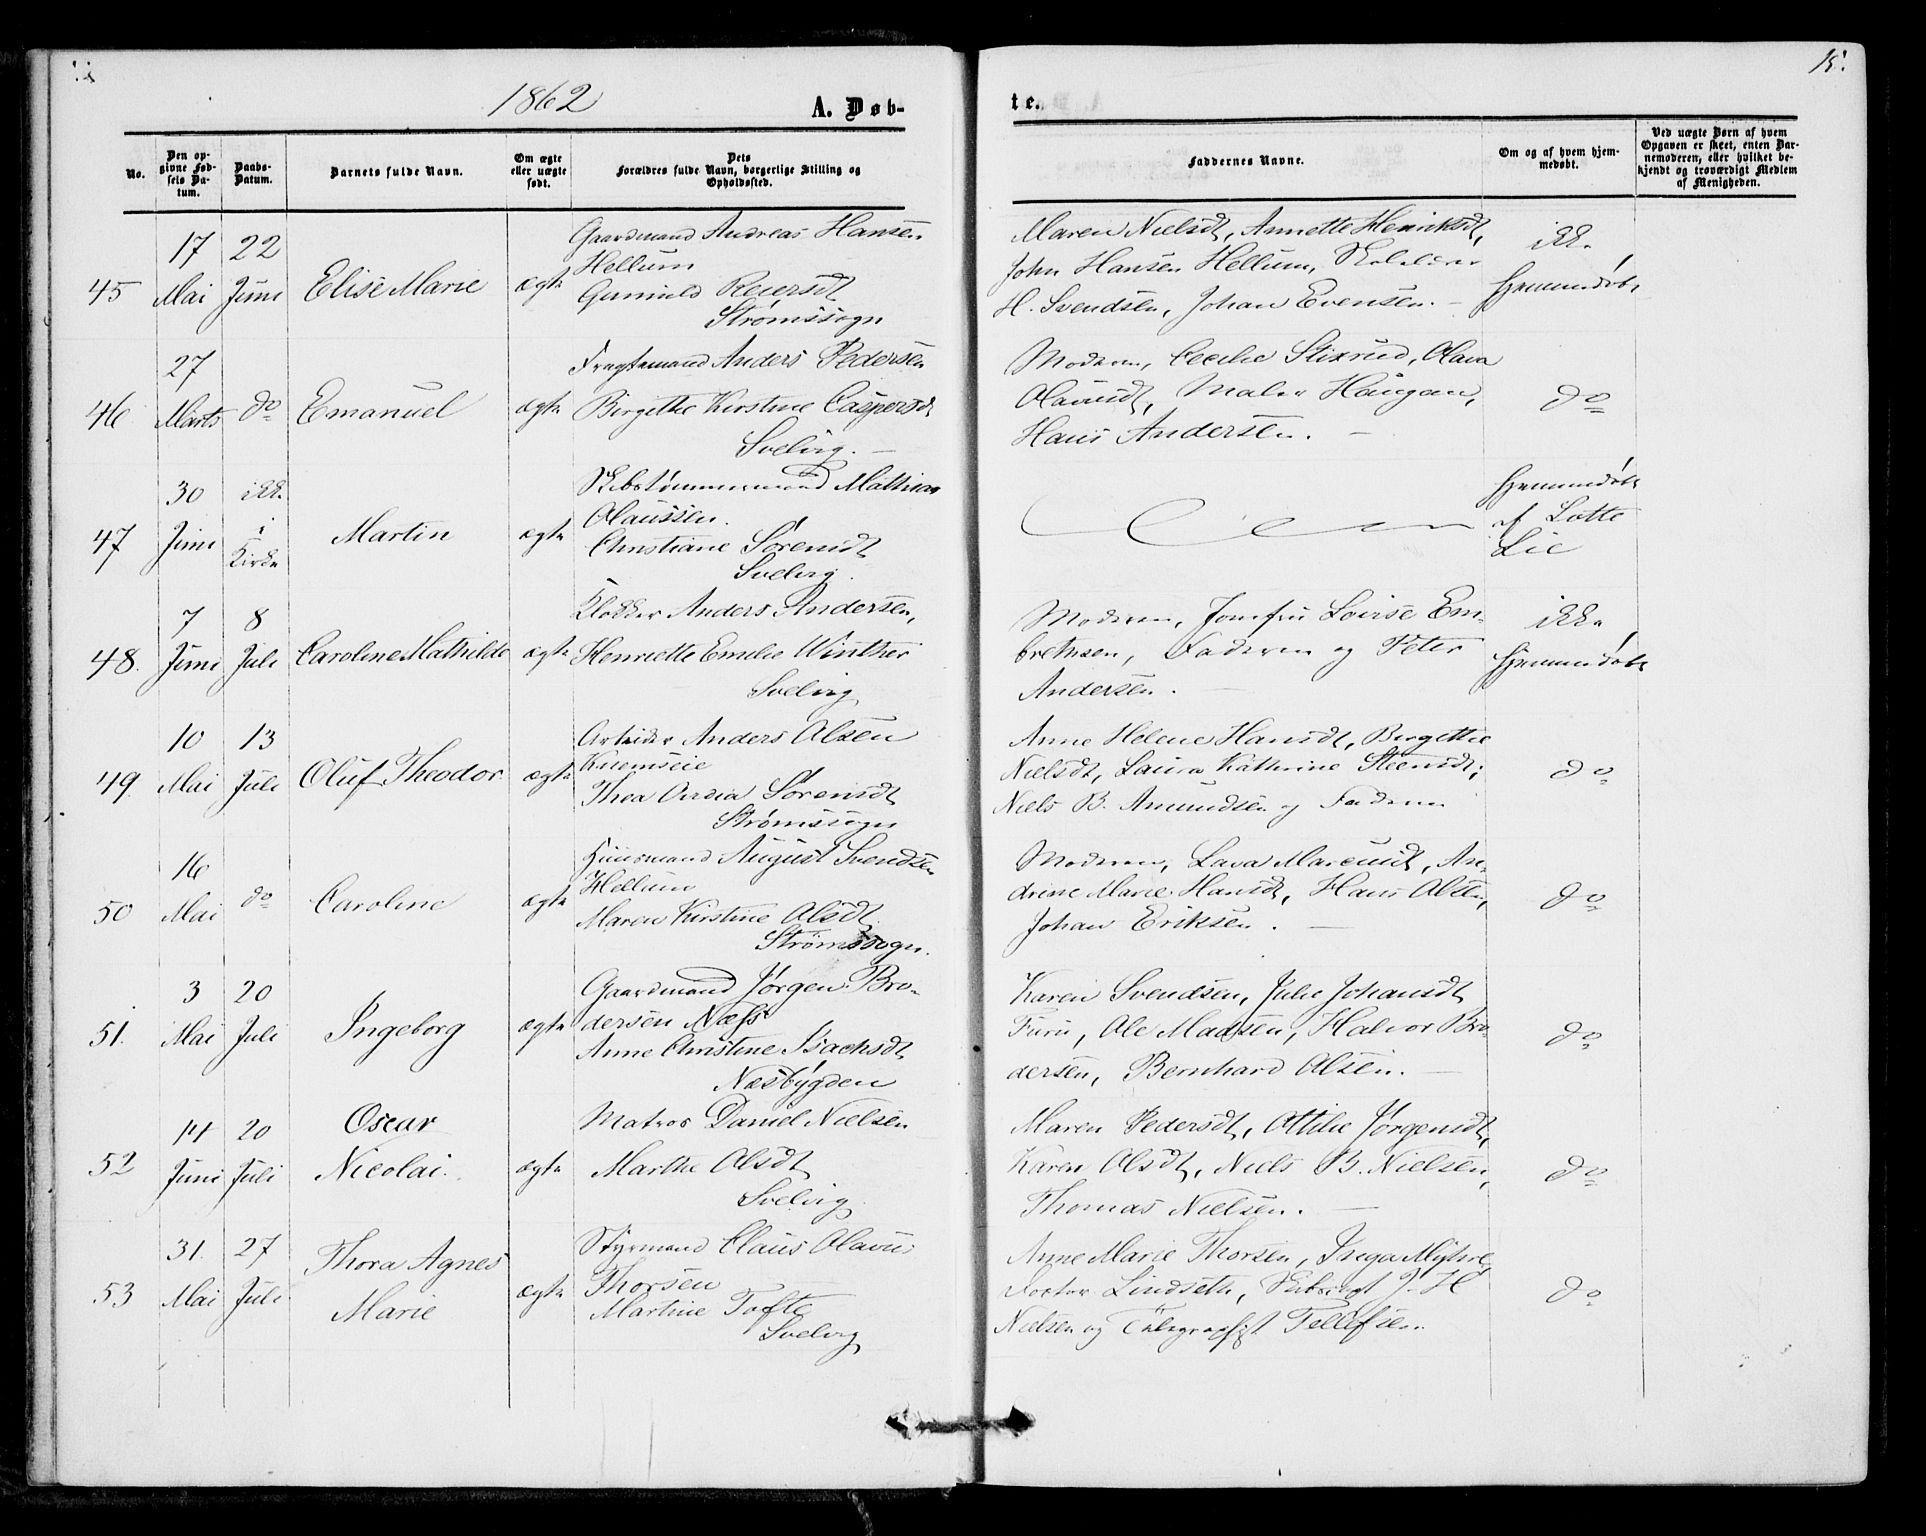 15.
1862
A. Døb-
te.
No.
Den op-
givne Fød-
sels Da-
tum.
Daabs-
Datum.
Barnets fulde Navn.
Om ægte
eller uægte
født.
Dets
Forældres fulde Navn, borgerlige Stilling og
Opholdssted.
Faddernes Navne.
Om og af hvem hjem-
medøbt.
Ved uægte Børn af hvem
Opgaven er skeet, enten Bar-
nemoderen, eller hvilket be-
kjendt og troværdigt Medlem
af Menigheden.
45
17
Mai
22
Juni
Elise Marie
ægte
Gaardmand Andreas Hansen
Hellum
Gunnild Reiersdt
Strømssogn
Maren Nielsdt, Annette Henriksdt,
John Hansen Hellum, Skolelærer
H. Svendsen, Johan Evensen. -
ikke
hjemmedøbt
46
27
Marts
do
Emanuel
ægte
Fragtemand Anders Pedersen
Birgithe Kirstine Caspersdt
Svelvig. -
Moderen, Cecilie Stixrud, Olava
Olavusdt, Maler Haugan,
Hans Andersen. -
do
47
30
Juni
ikke
i
Kirke
Martin
ægte
Skibstømmermand Mathias
Olaussen.
Christiane Sørensdt
Svelvig.
hjemmedøbt
af Lotte
Lie
48.
7
Juni
8
Juli
Caroline Mathilde
ægte
Klokker Anders Andersen,
Henriette Emilie Winther
Svelvig
Moderen, Jomfru Lovise Em-
brethsen, Faderen og Peter
Andersen. -
ikke
hjemmedøbt
49.
10
Mai
13
Juli
Oluf Theodor
ægte
Arbeider Anders Olsen
Knemseie
Thea Sørensdt
Strømssogn
Anne Helene Hansdt, Birgitthe
Nielsdt, Laura Kathrine Steensdt,
Niels B. Amundsen og Faderen
do
50
16
Mai
do
Caroline
ægte
Huusmand August Svendsen
Hellum
Maren Kirstine Olsdt
Strømssogn.
Moderen, Lava Marcusdt, An-
drine Marie Hansdt, Hans Olsen,
Johan Eriksen. -
do
51.
3
Mai
20
Juli
Ingeborg
ægte
Gaardmand Jørgen Bro-
dersen Næss
Anne Christine Isachsdt
Næsbygden
Karen Svendsen, Julie Johansdt
Furu, Ole Madsen, Halvor Bro-
dersen, Bernhard Olsen. -
do
52
14
Juni
20
Juli
Oscar
Nicolai.
ægte
Matros Daniel Nielsen
Marthe Olsdt
Svelvig
Maren Pedersdt, Ottilie Jørgensdt,
Karen Olsdt, Niels B. Nielsen,
Thomas Nielsen. -
do
53
31.
Mai
27
Juli
Thora Agnes
Marie
ægte
Styrmand Claus Olavus
Thorsen
Martine Tofte
Svelvig
Anne Marie Thorsen, Inga Myhre,
Doctor Lindseth, J. H
Nielsen og Telegraphist Tellefsen.
do